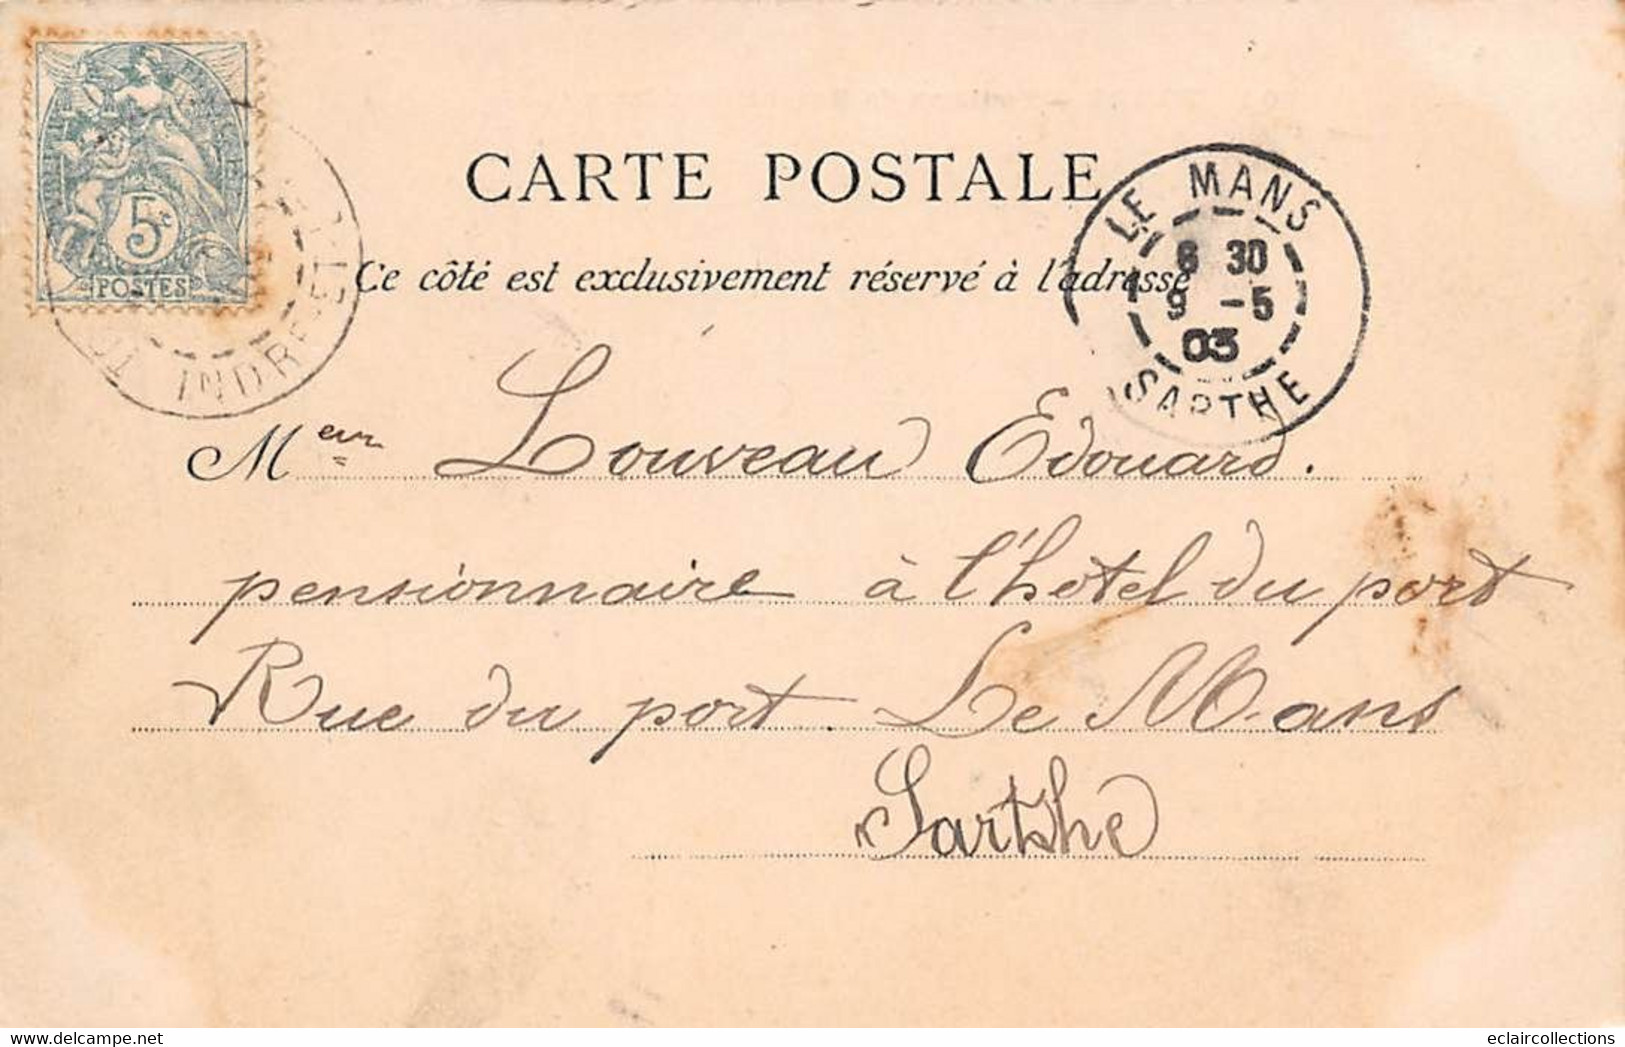 5c
POSTES
INDRE-ET-L
CARTE POSTALE
Ce côté est exclusivement réservé à l'adresse
LE MANS
6 30
9 -5
03
SARTHE
Meur Louveau Edouard.
pensionnaire à l'hotel du port
Rue du port. Le Mans
Sarthe
eclaircollections